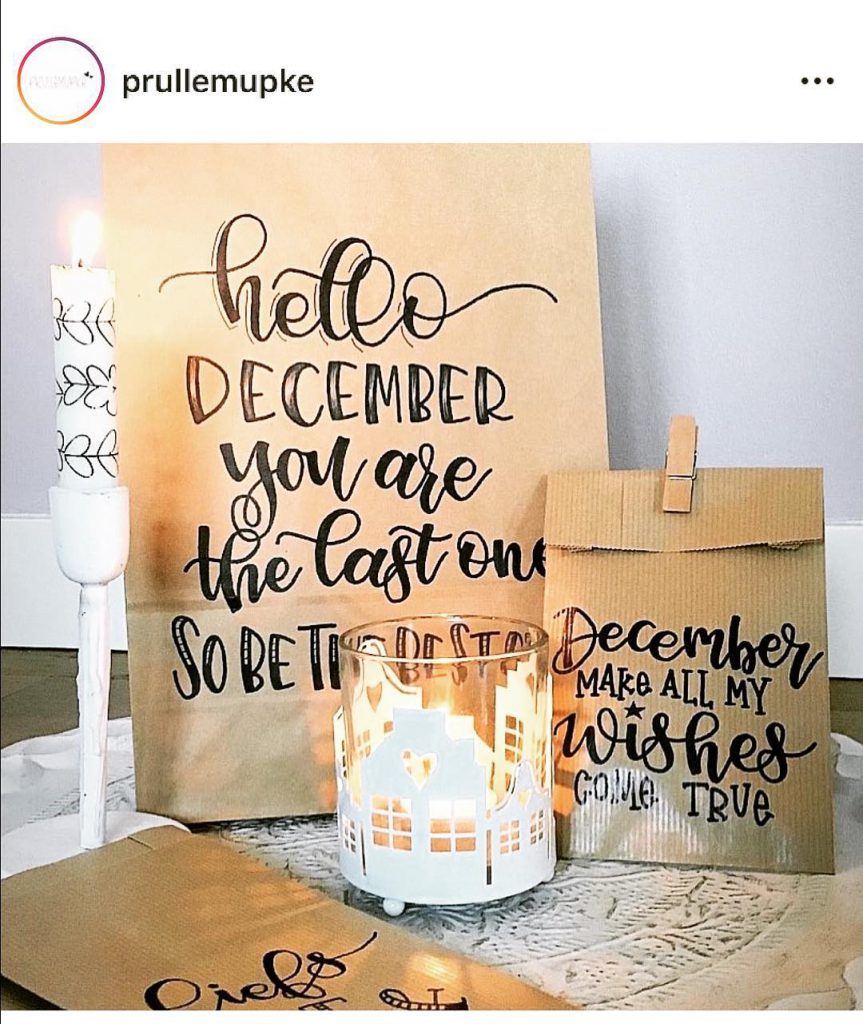 prullemupke
hello
DECEMBER
you are
the last one
SO BE THE BEST ONE
December
MAKE ALL MY
wishes
COME TRUE